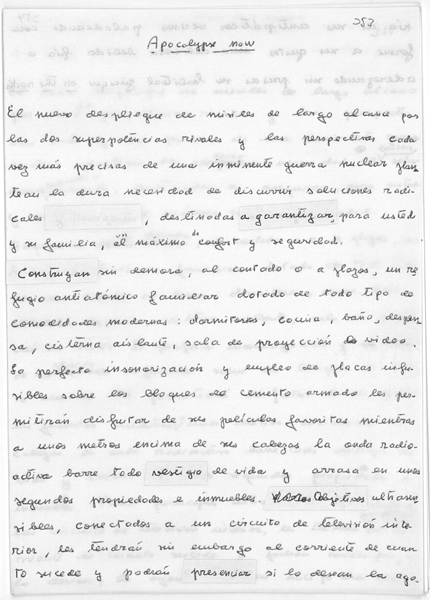 353
Apocalypse now
El nuevo despliegue de misiles de largo alcance por
las dos superpotencias rivales y las perspectivas cada
vez más precisas de una inminente guerra nuclear plan
tean la dura necesidad de discurrir soluciones radi
cales , destinadas a garantizar, para usted
y su familia, el máximo de confort y seguridad.
Construyan sin demora, al contado o a plazos, un re
fugio antiatómico familiar dotado de todo tipo de
comodidades modernas: dormitorios, cocina, baño, despen
sa, cisterna aislante, sala de proyección de video.
Su perfecta insonorización y empleo de placas infu
sibles sobre los bloques de cemento armado les per
mitirán disfrutar de sus películas favoritas mientras
a unos metros encima de sus cabezas la onda radio-
activa barre todo vestigio de vida y arrasa en unos
segundos propiedades e inmuebles. Objetivos ultrasen
sibles, conectados a un circuito de televisión inte
rior, les tendrán sin embargo al corriente de cuan
to sucede y podrán presenciar si lo desean la ago-